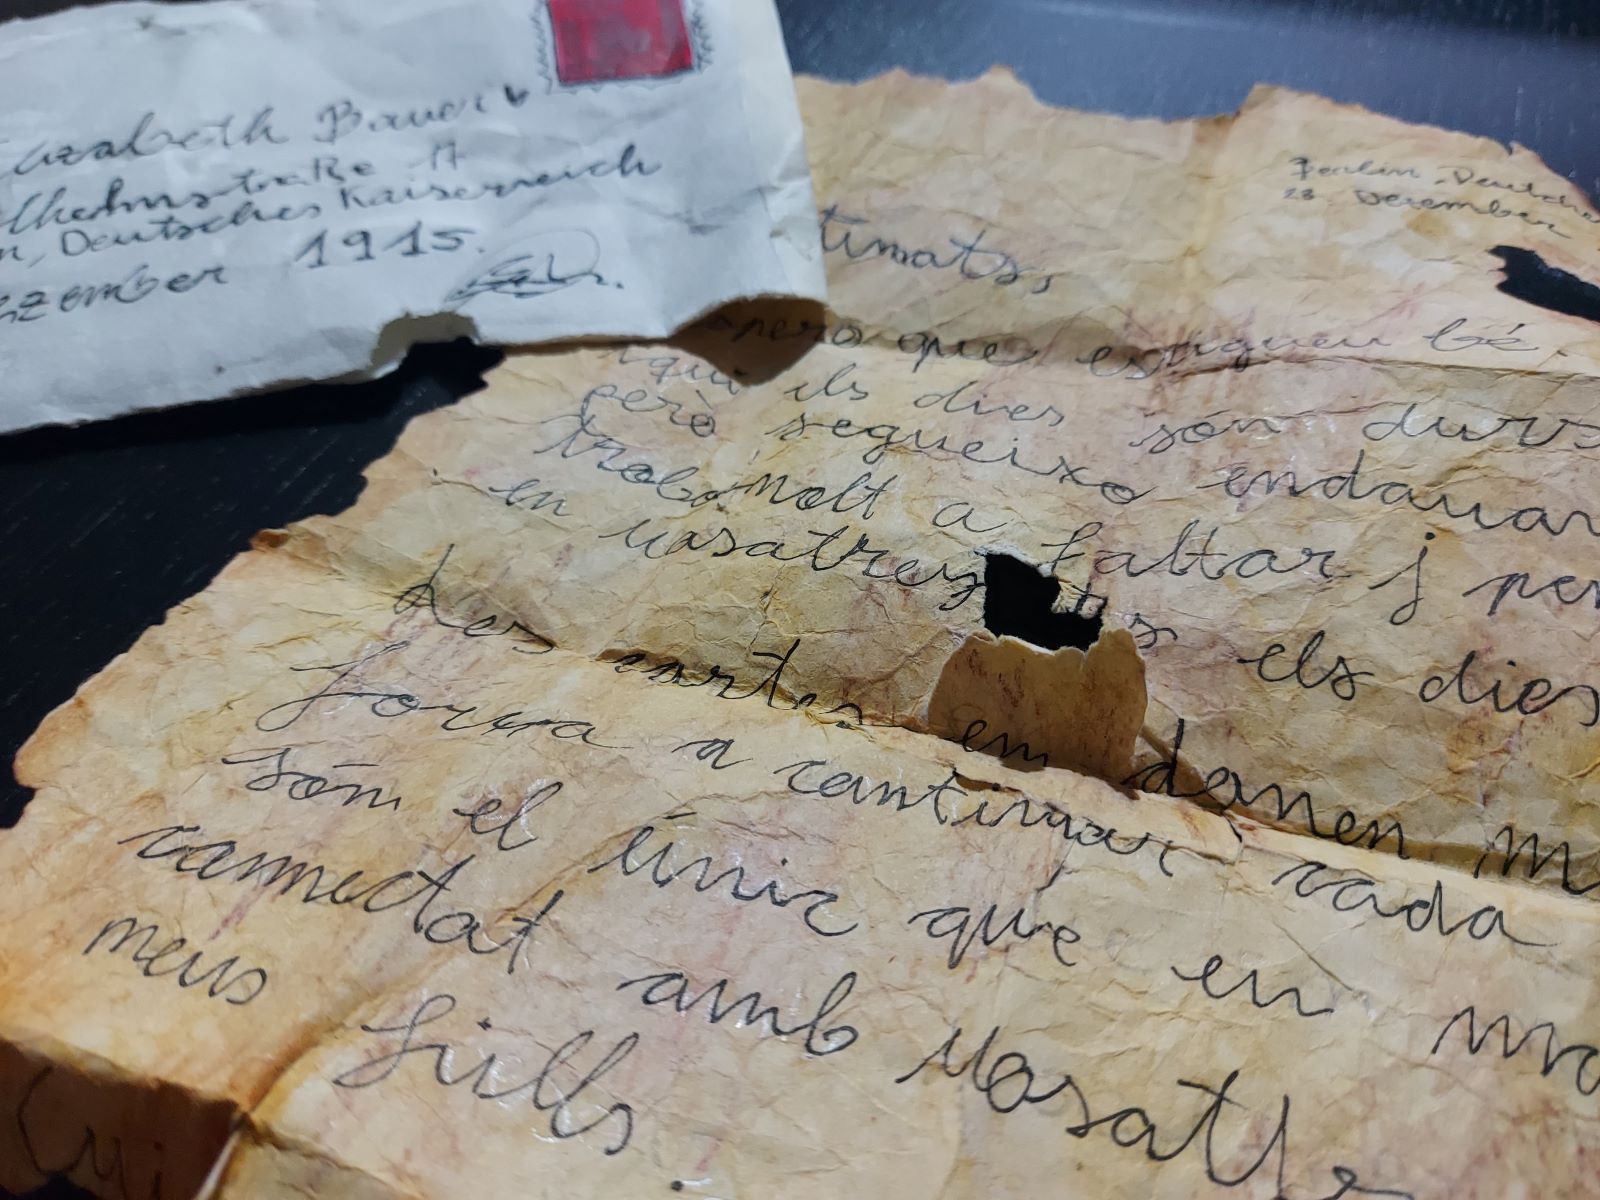 Bauer
Deutsches Kaiserreich
1915.
Berlin, Deutsches
23. Dezember
timats,
espero que estigueu bé.
Aquí els dies són durs
però segueixo endavan
trobo molt a faltar i pen
en vosatres tots els dies
Les cartes em donen m
força a continuar cada
són el únic que em ma
connectat amb vosatr
meus fills.